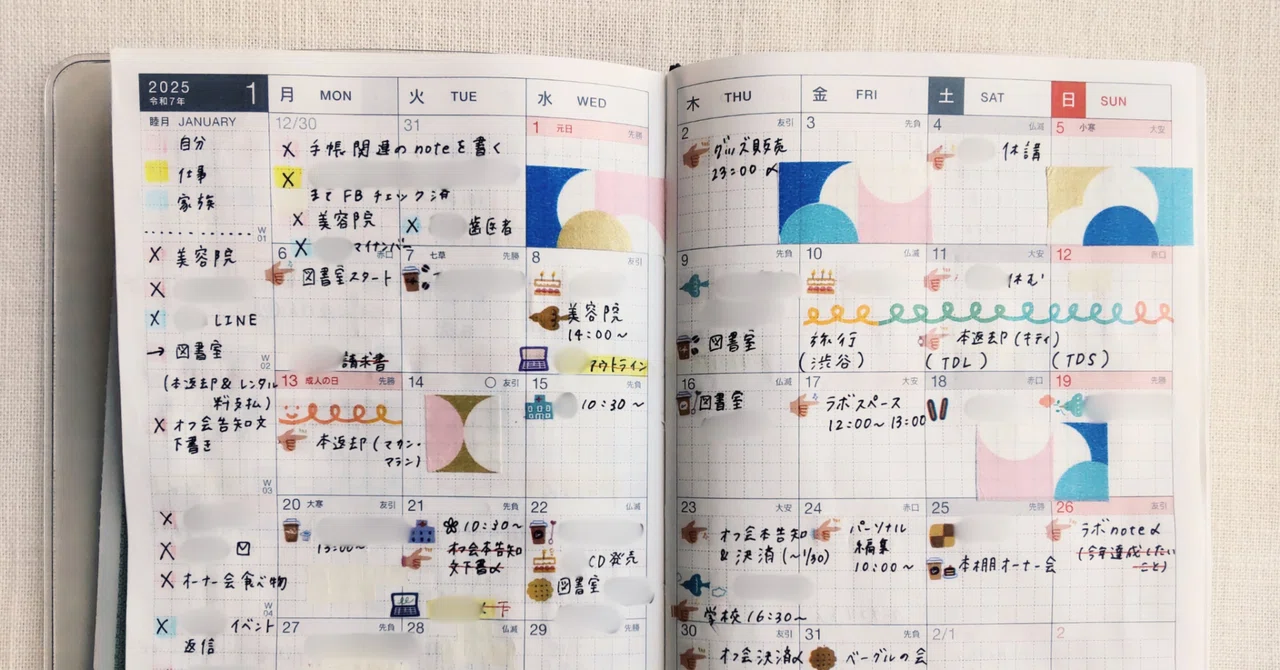 2025
令和7年
1
月 MON
火 TUE
水 WED
木 THU
金 FRI
土 SAT
日 SUN
睦月 JANUARY
自分
仕事
家族
W
01
× 美容院
×
× LINE
→ 図書室
W
02
(本返却&レンタル
料支払)
× オフ会告知文
下書き
W
03
×
×
× オーナー会食べ物
W
04
× イベント
返信
12/30
× 手帳関連のnoteを書く
×
までFBチェック済
× 美容院
× マイナンバー
31
× 歯医者
1 元日 先勝
2 友引
グッズ販売
23:00〆
3 先負
4 仏滅
休講
5 小寒 大安
6 赤口
図書室スタート
請求書
7 七草 先勝
8 友引
美容院
14:00~
アウトライン
9 先負
図書室
10 仏滅
旅行
(渋谷)
11 大安
休む
本返却(キティ)
(TDL)
12 赤口
(TDS)
13 成人の日 先勝
本返却(マカン・
マラン)
14 友引
15 先負
10:30~
16 仏滅
図書室
17 大安
ラボスペース
12:00~13:00
18 赤口
19 先勝
20 大寒 友引
21 先負
10:30~
オフ会本告知
文下書〆
22 仏滅
CD発売
図書室
23 大安
オフ会本告知
&決済(~1/30)
学校16:30~
24 赤口
パーソナル
編集
10:00~
25 先勝
本棚オーナー会
26 友引
ラボnote〆
(今年達成したい
こと)
27 先負
28 仏滅
29 先勝
30 友引
オフ会決済〆
31 先負
ベーグルの会
2/1
2